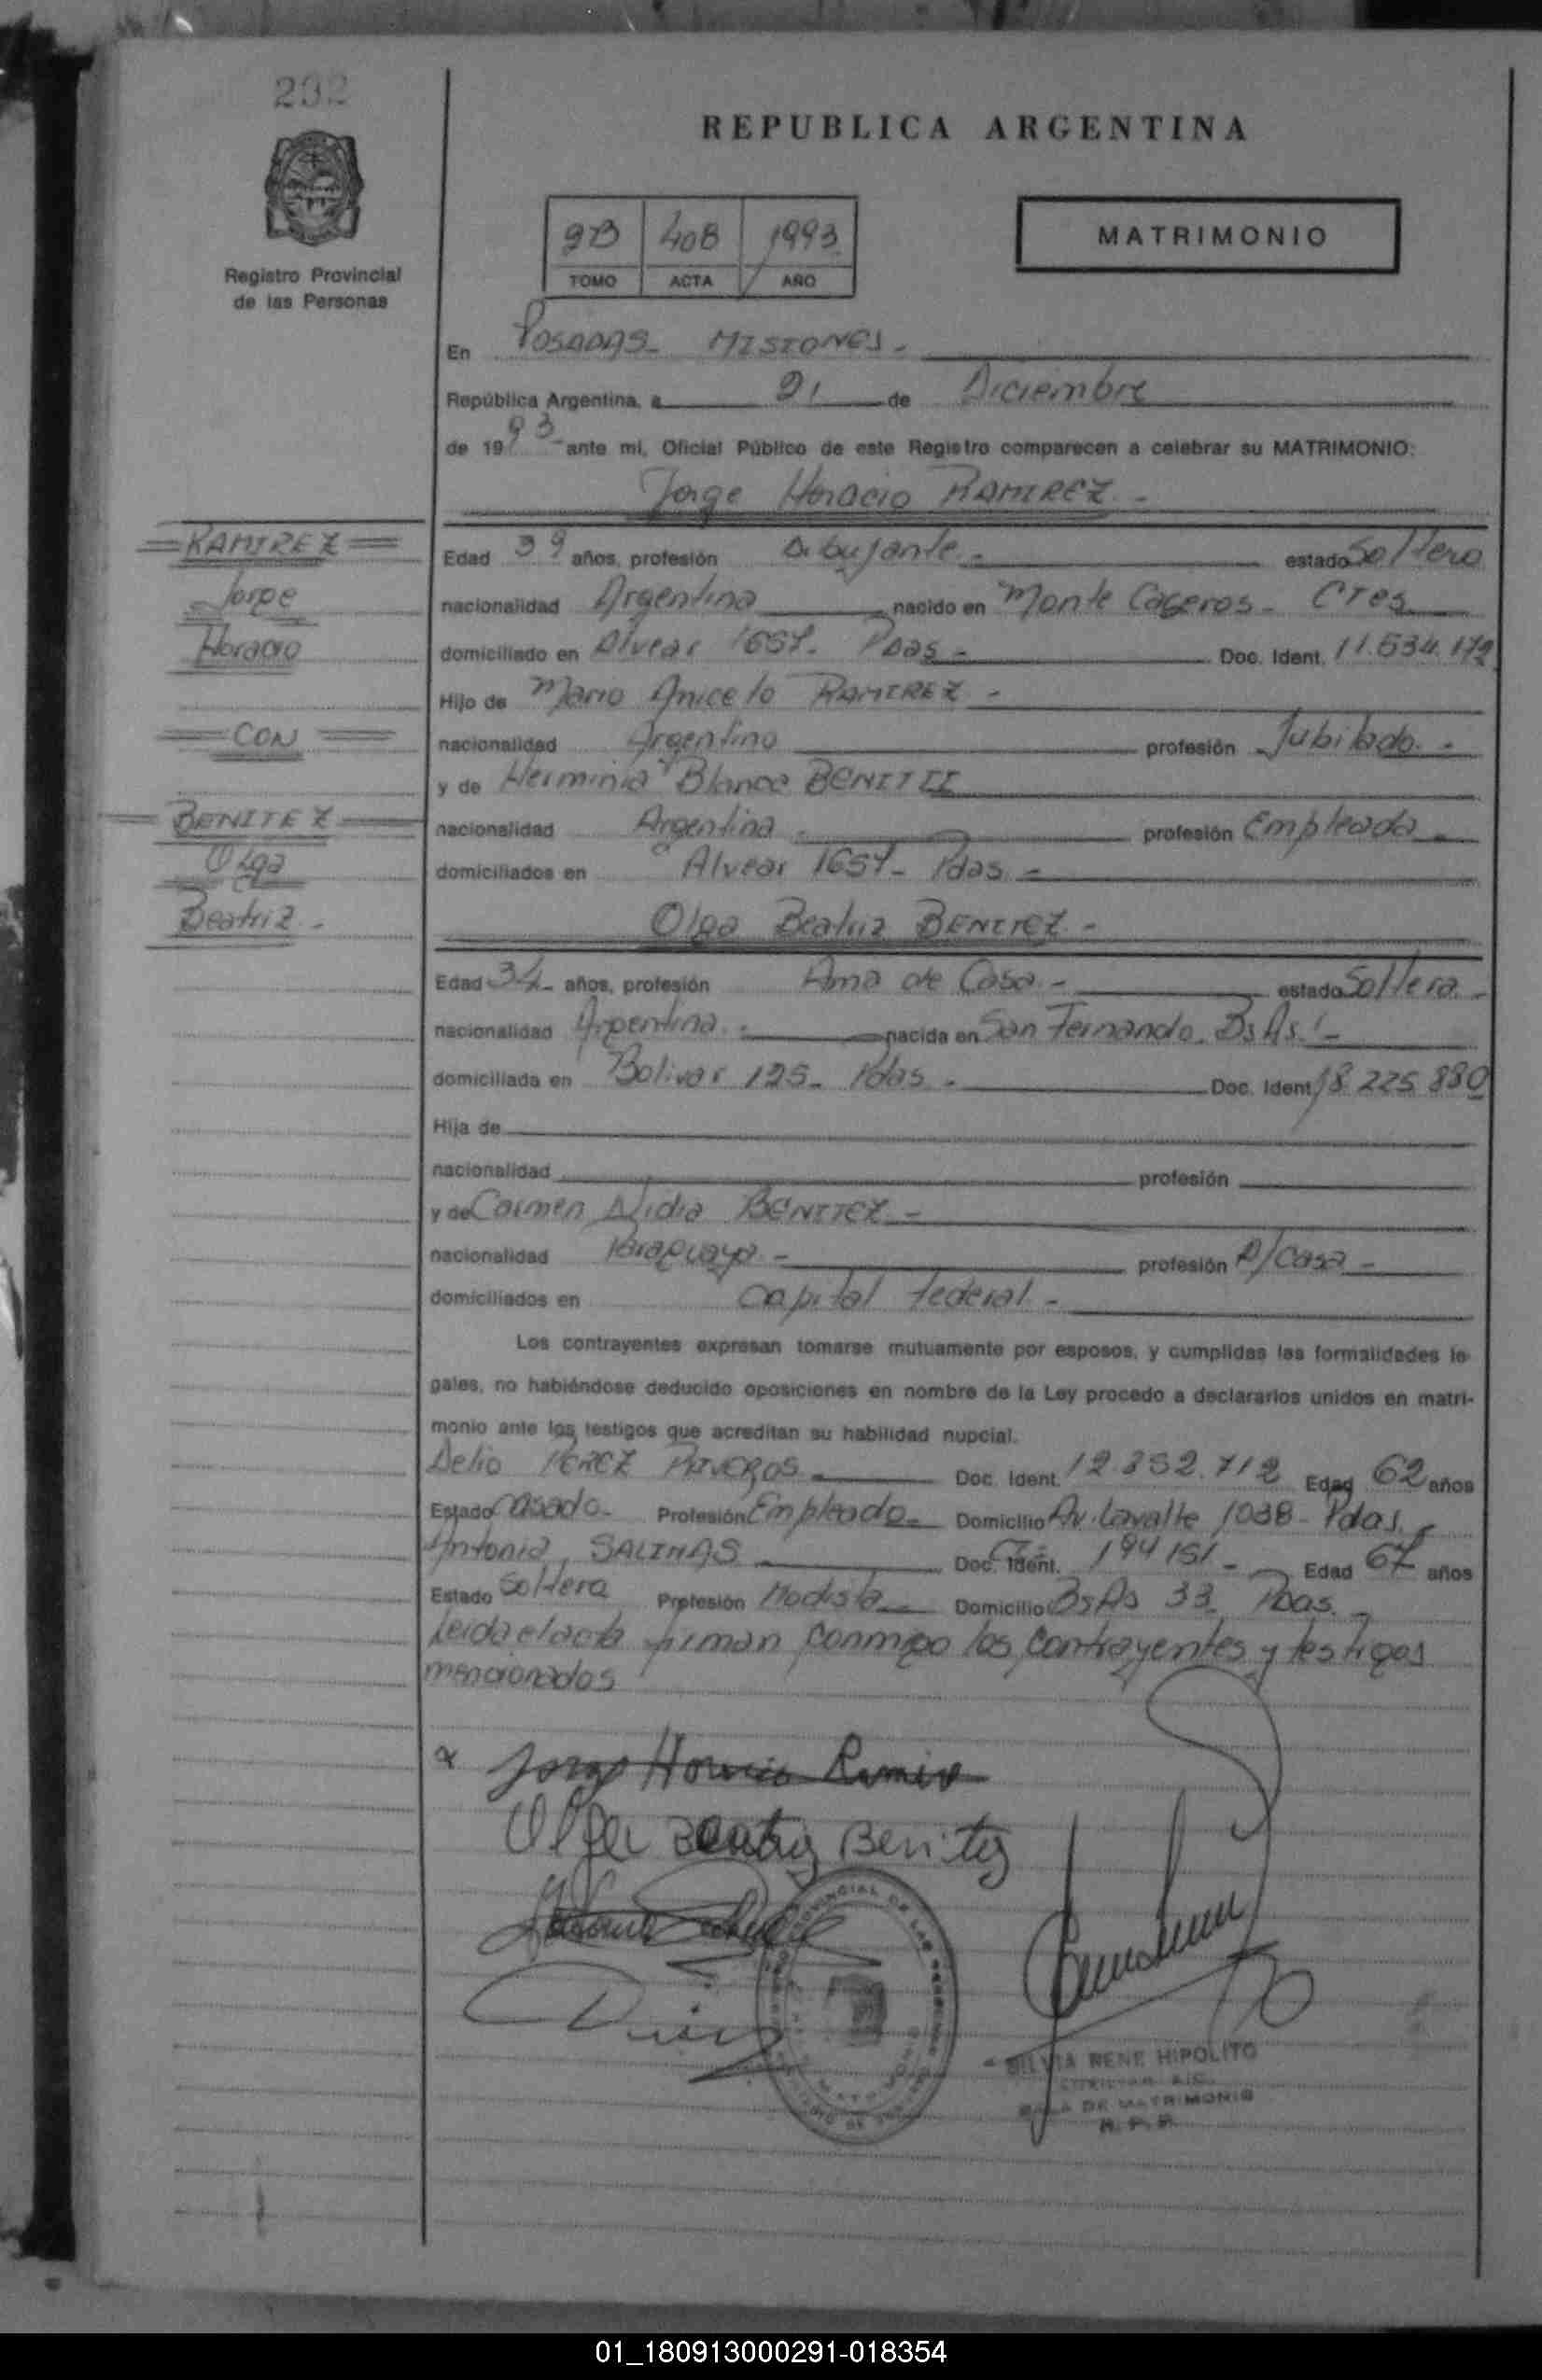 202
REPUBLICA ARGENTINA
Registro Provincial
de las Personas
9B 408 1993
TOMO ACTA AÑO
MATRIMONIO
En POSADAS - MISIONES -
República Argentina, a 21 de Diciembre
de 1993 ante mi, Oficial Público de este Registro comparecen a celebrar su MATRIMONIO:
Jorge Horacio RAMIREZ -
RAMIREZ
Jorge
Horacio
CON
BENITEZ
Olga
Beatriz -
Edad 39 años, profesión Dibujante - estado Soltero
nacionalidad Argentina nacido en Monte Caseros - Ctes
domiciliado en Alvear 1657 - Pdas - Doc. Ident. 11.534.172
Hijo de Mario Aniceto RAMIREZ -
nacionalidad Argentino profesión Jubilado -
y de Herminia Blanca
nacionalidad Argentina - profesión Empleada -
domiciliados en Alvear 1657 - Pdas -
Olga Beatriz BENITEZ -
Edad 34 años, profesión Ama de Casa - estado Soltera -
nacionalidad Argentina - nacida en San Fernando. Bs As. -
domiciliada en Bolivar 125 - Pdas - Doc. Ident. 18 225 880
Hija de
nacionalidad profesión
y de Carmen Nidia BENITEZ -
nacionalidad Paraguaya - profesión A/casa -
domiciliados en Capital Federal -
Los contrayentes expresan tomarse mutuamente por esposos, y cumplidas las formalidades le-
gales, no habiéndose deducido oposiciones en nombre de la Ley procedo a declararlos unidos en matri-
monio ante los testigos que acreditan su habilidad nupcial.
Delio PEREZ RIVEROS - Doc. Ident. 12.352.712 Edad 62 años
Estado Casado - Profesión Empleado - Domicilio Av. Lavalle 1038 - Pdas -
Antonia SALINAS Doc. Ident. 194151 - Edad 67 años
Estado Soltera Profesión Modista Domicilio Bs As 33 Pdas -
Leida el acta firman conmigo los contrayentes y testigos
mencionados
Jorge Horacio Ramirez
Olga Beatriz Benitez
SILVIA RENE HIPOLITO
SALA DE MATRIMONIO
R. P. P.
01_180913000291-018354